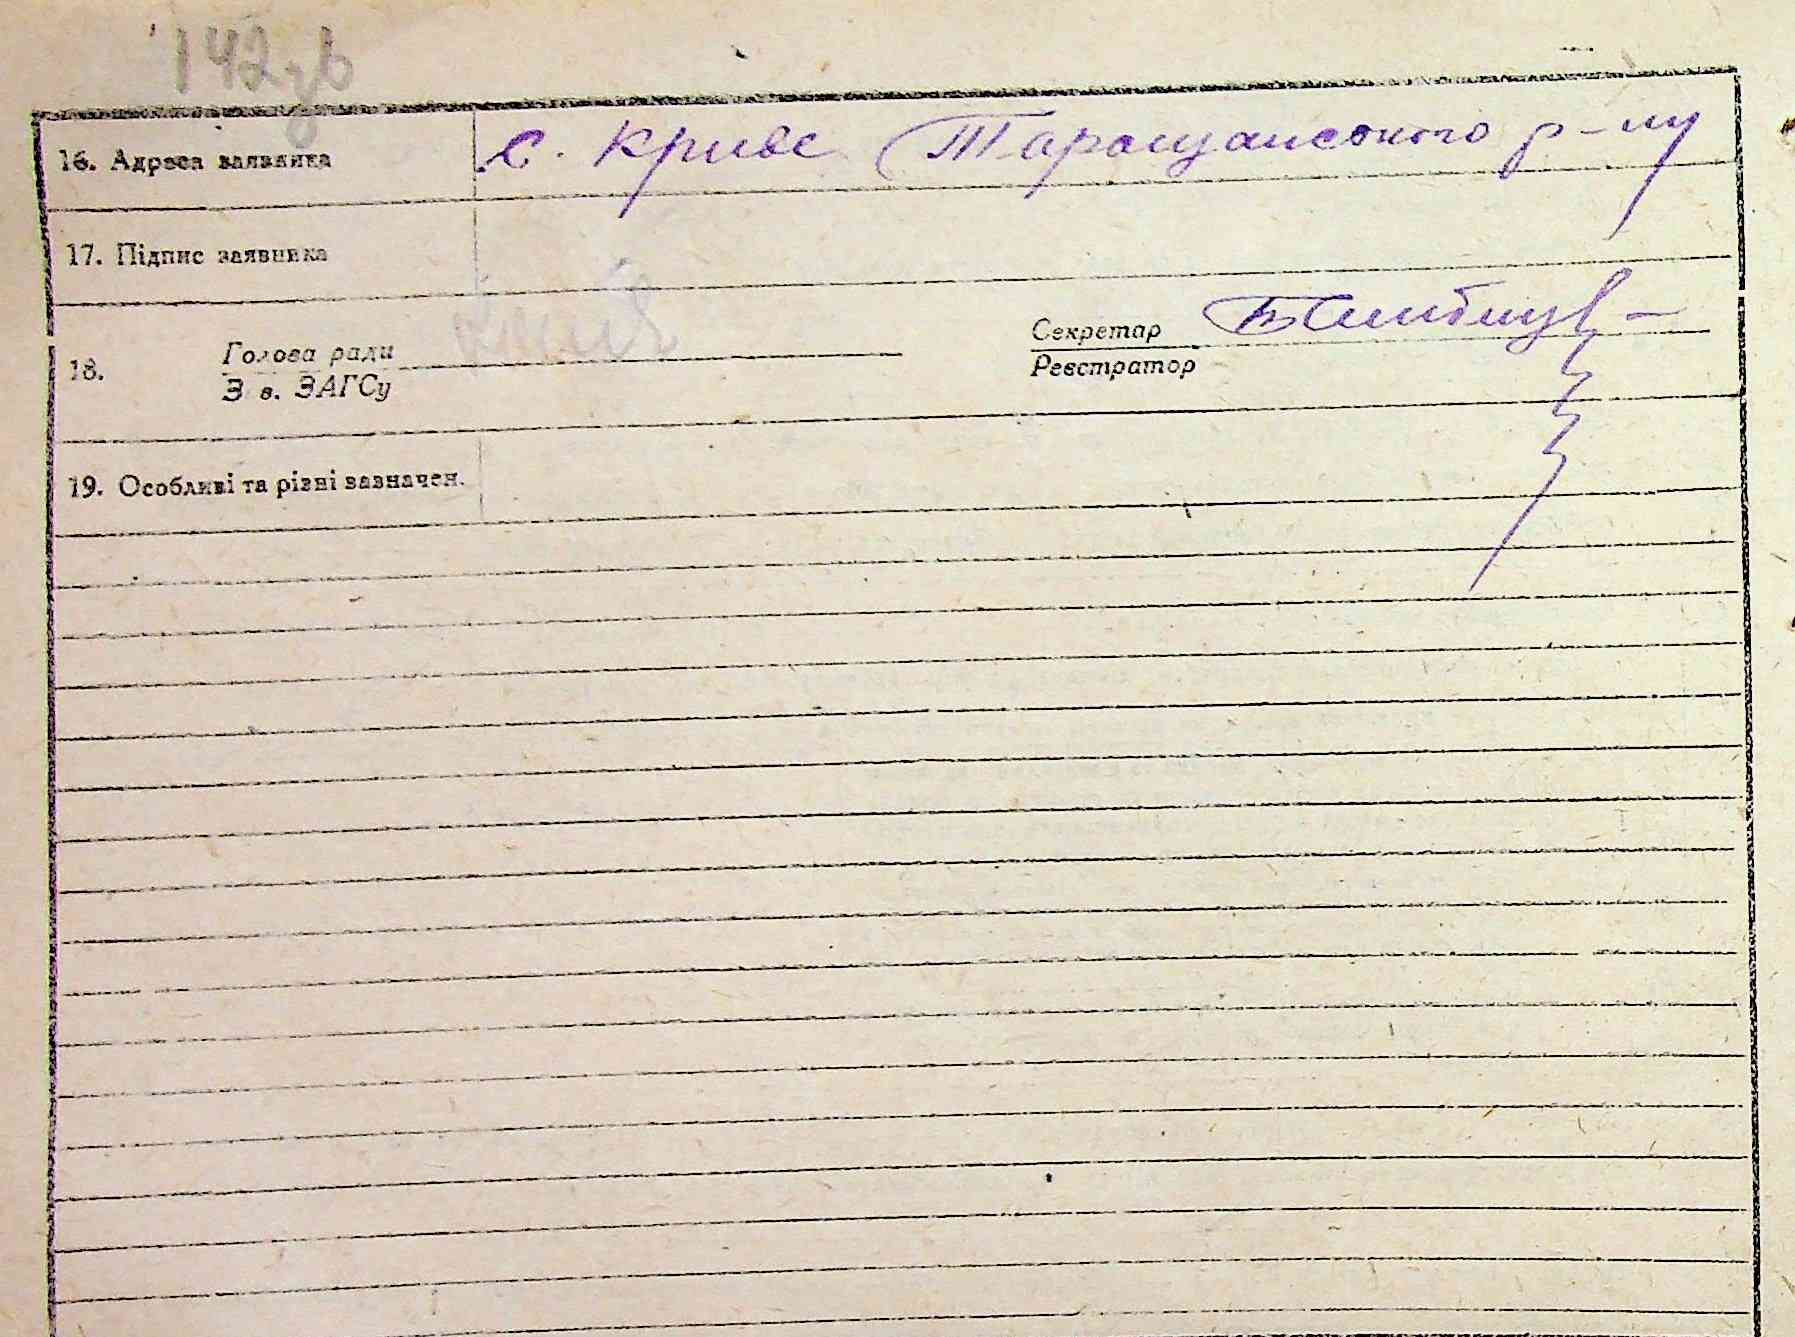 142зв
16. Адреса заявника с. Криве Таращанського р-ну
17. Підпис заявника
18. Голова ради Секретар
З в. ЗАГСу Реєстратор
19. Особливі та різні зазначен.